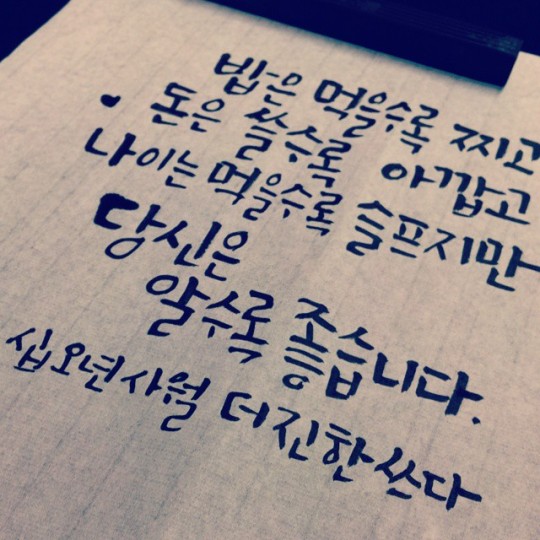 밥은 먹을수록 찌고
돈은 쓸수록 아깝고
나이는 먹을수록 슬프지만
당신은
알수록 좋습니다.
십오년사월 더진한쓰다